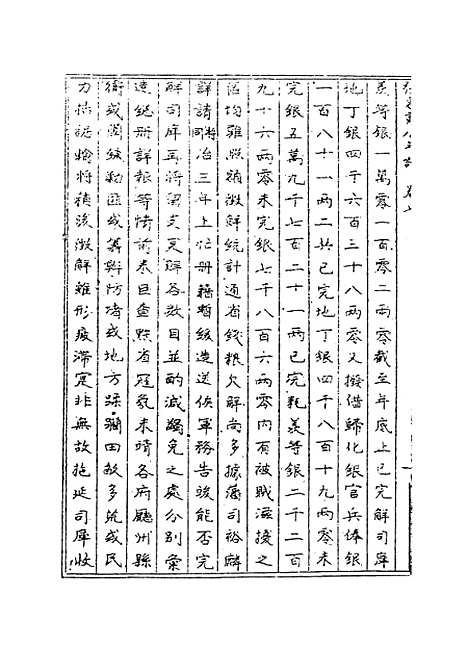 羨等銀一萬零一百零二兩零截至年底上已完解司庫
地丁銀四千六百三十八兩零又撥借歸化銀官兵俸銀
一百八十一兩二共已完地丁銀四千八百十九兩零未
完銀五萬九千七百二十一兩已完耗羨等銀二千二百
九十六兩零未完銀七千八百六兩零內有被賊滋擾之
區均難照額徵解統計通省錢糧欠解尚多據藩司裕麟
詳請將同治三年上忙冊籍暫緩造送俟軍務告竣能否完
解司庫再將留支支解各數目並酌減蠲免之處分別彙
造總冊詳報等情前來臣查黔省冠氛未靖各府廳州縣
衛或圍級勦匪或募勇防堵或地方蹂躪田畝多荒或民
力拮据愴將積淡徵解雖形疲滯實非無故拖延司庫收